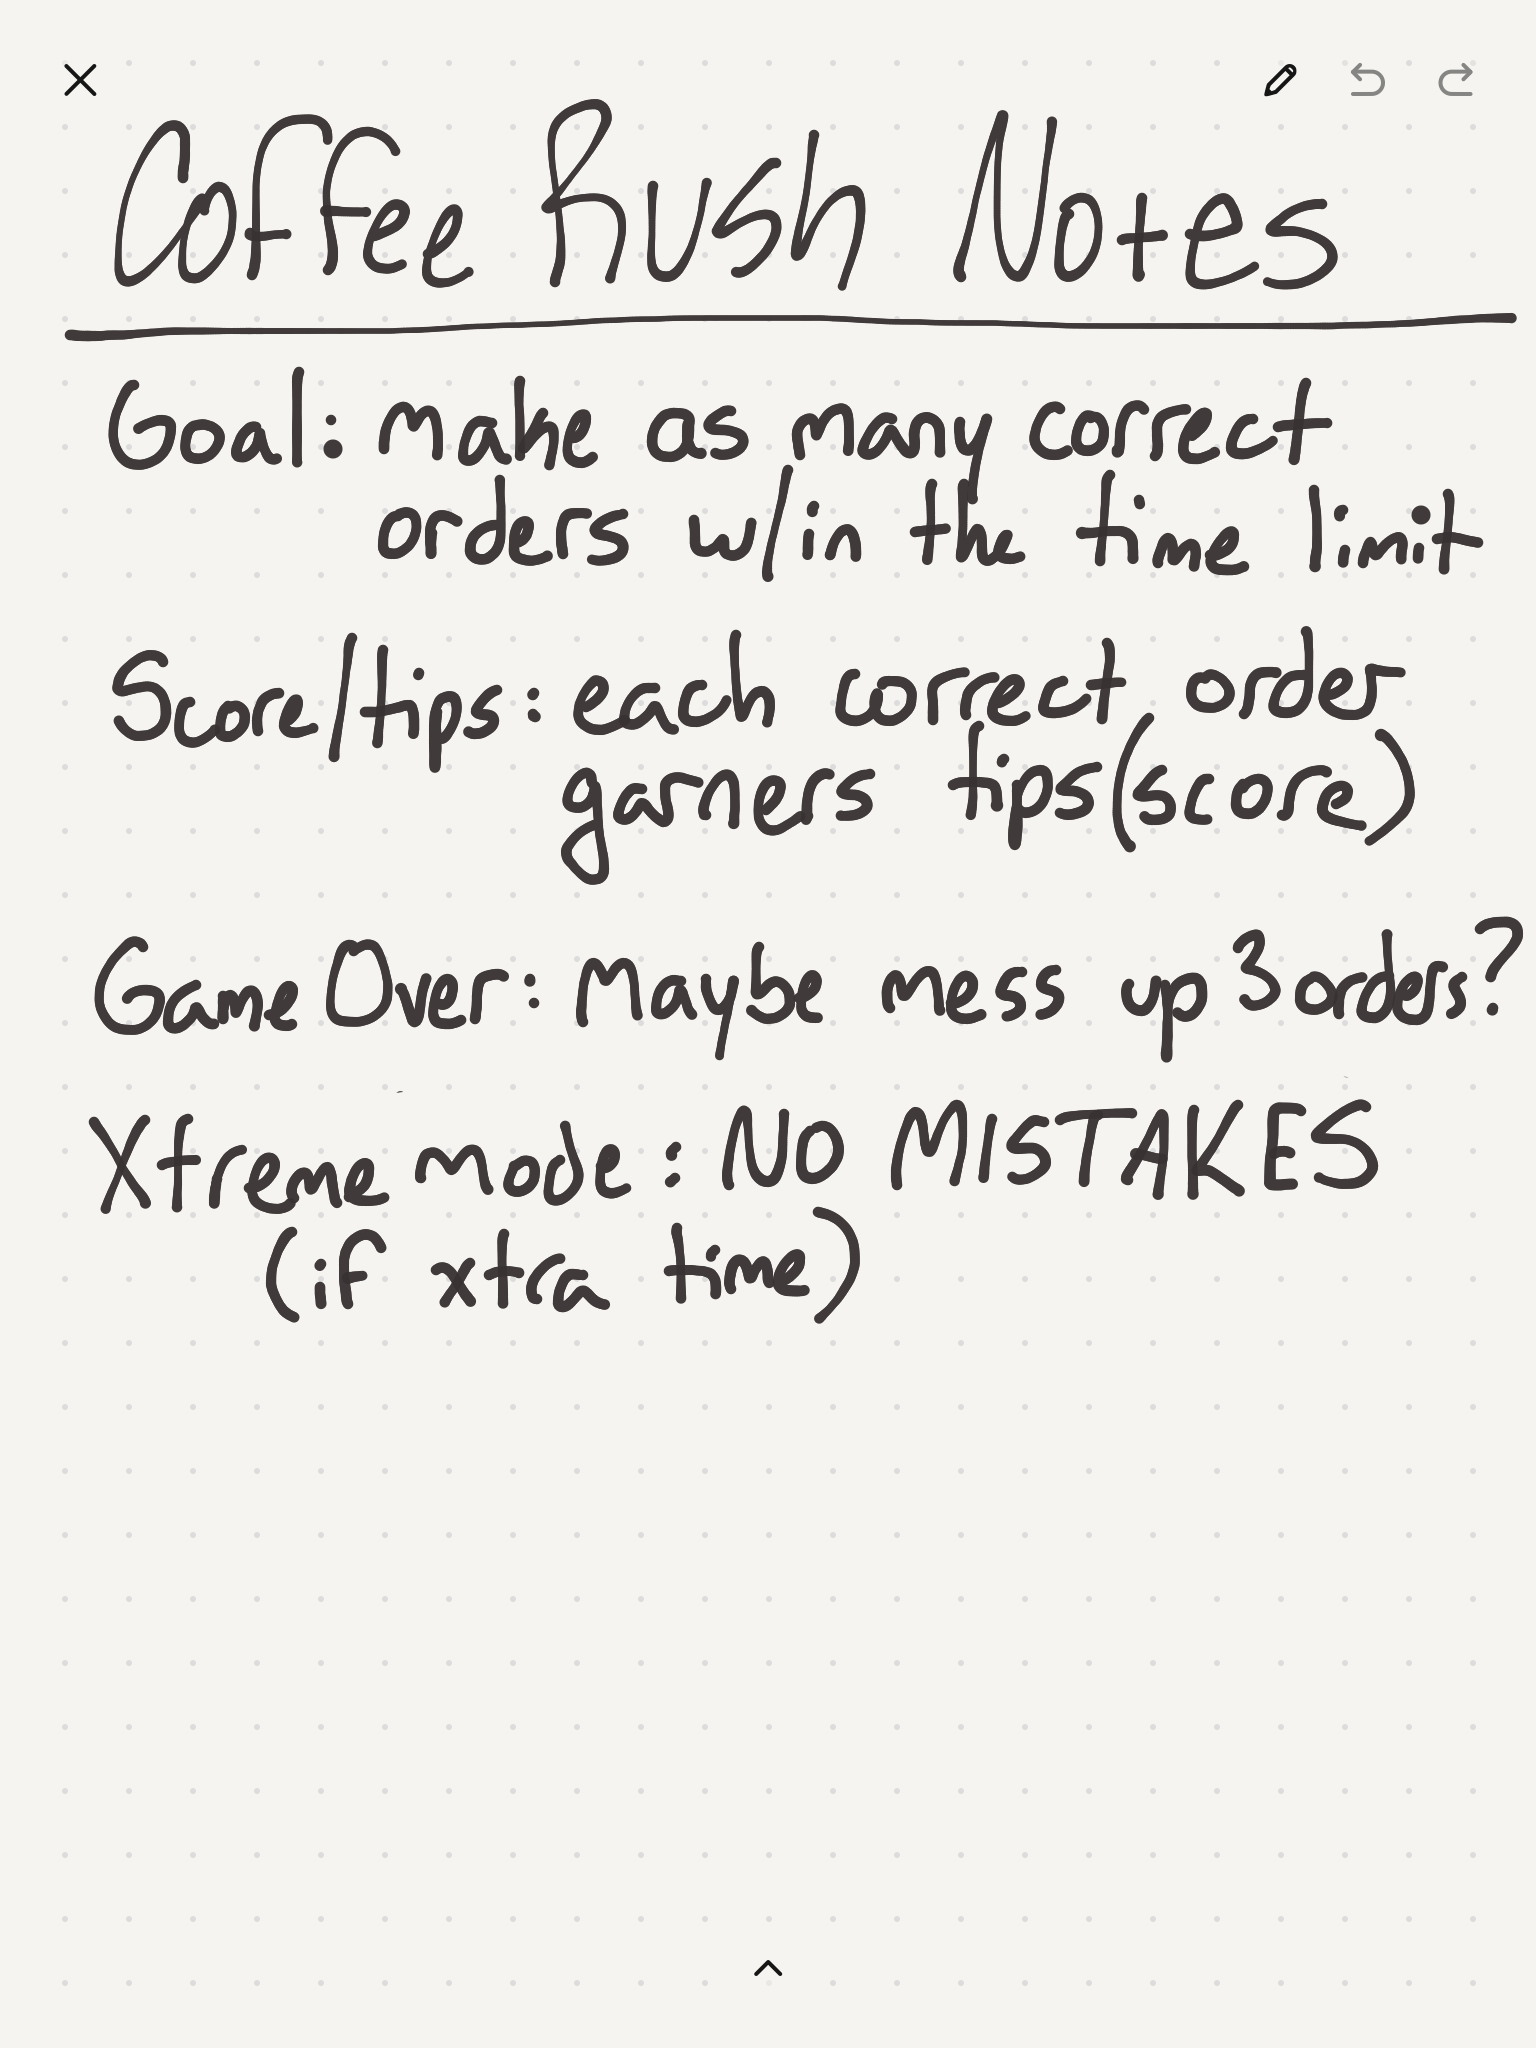 Coffee Rush Notes
Goal: make as many correct
orders w/in the time limit
Score/tips: each correct order
garners tips(score)
Game Over: Maybe mess up 3 orders?
Xtreme mode: NO MISTAKES
(if xtra time)